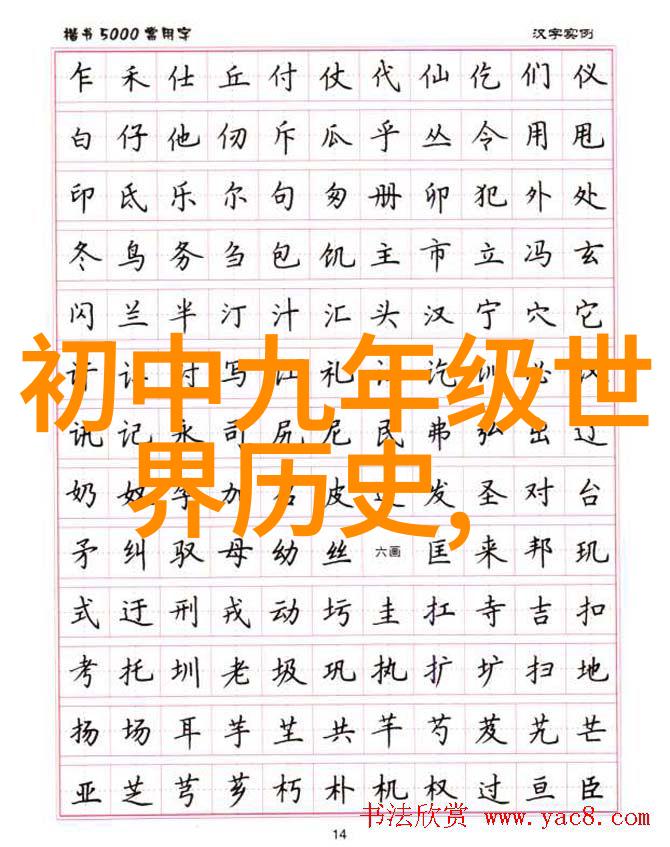 楷书5000常用字 汉字实例
乍 禾 仕 丘 付 仗 代 仙 仡 们 仪
白 仔 他 仞 斥 瓜 乎 丛 令 用 甩
印 氐 乐 尔 句 匆 册 卯 犯 外 处
冬 鸟 务 刍 包 饥 主 市 立 冯 玄
闪 兰 半 汀 汁 汇 头 汉 宁 穴 它
写 礼 讫 训 必
初中九年级世
讯 记 永 司 尻 尼 民 弗 弘 出 辽
界历史，
奶 奴 加 皮 发 圣 对 台
矛 纠 驭 母 幼 丝 六画 匡 来 邦 玑
式 迂 刑 戎 动 圬 圭 扛 寺 吉 扣
考 托 圳 老 圾 巩 执 扩 圹 扫 地
扬 场 耳 芋 芏 共 芊 芍 芨 芄 芒
亚 芝 芎 芗 朽 朴 机 权 过 亘 臣
书法欣赏 www.yac8.com
14